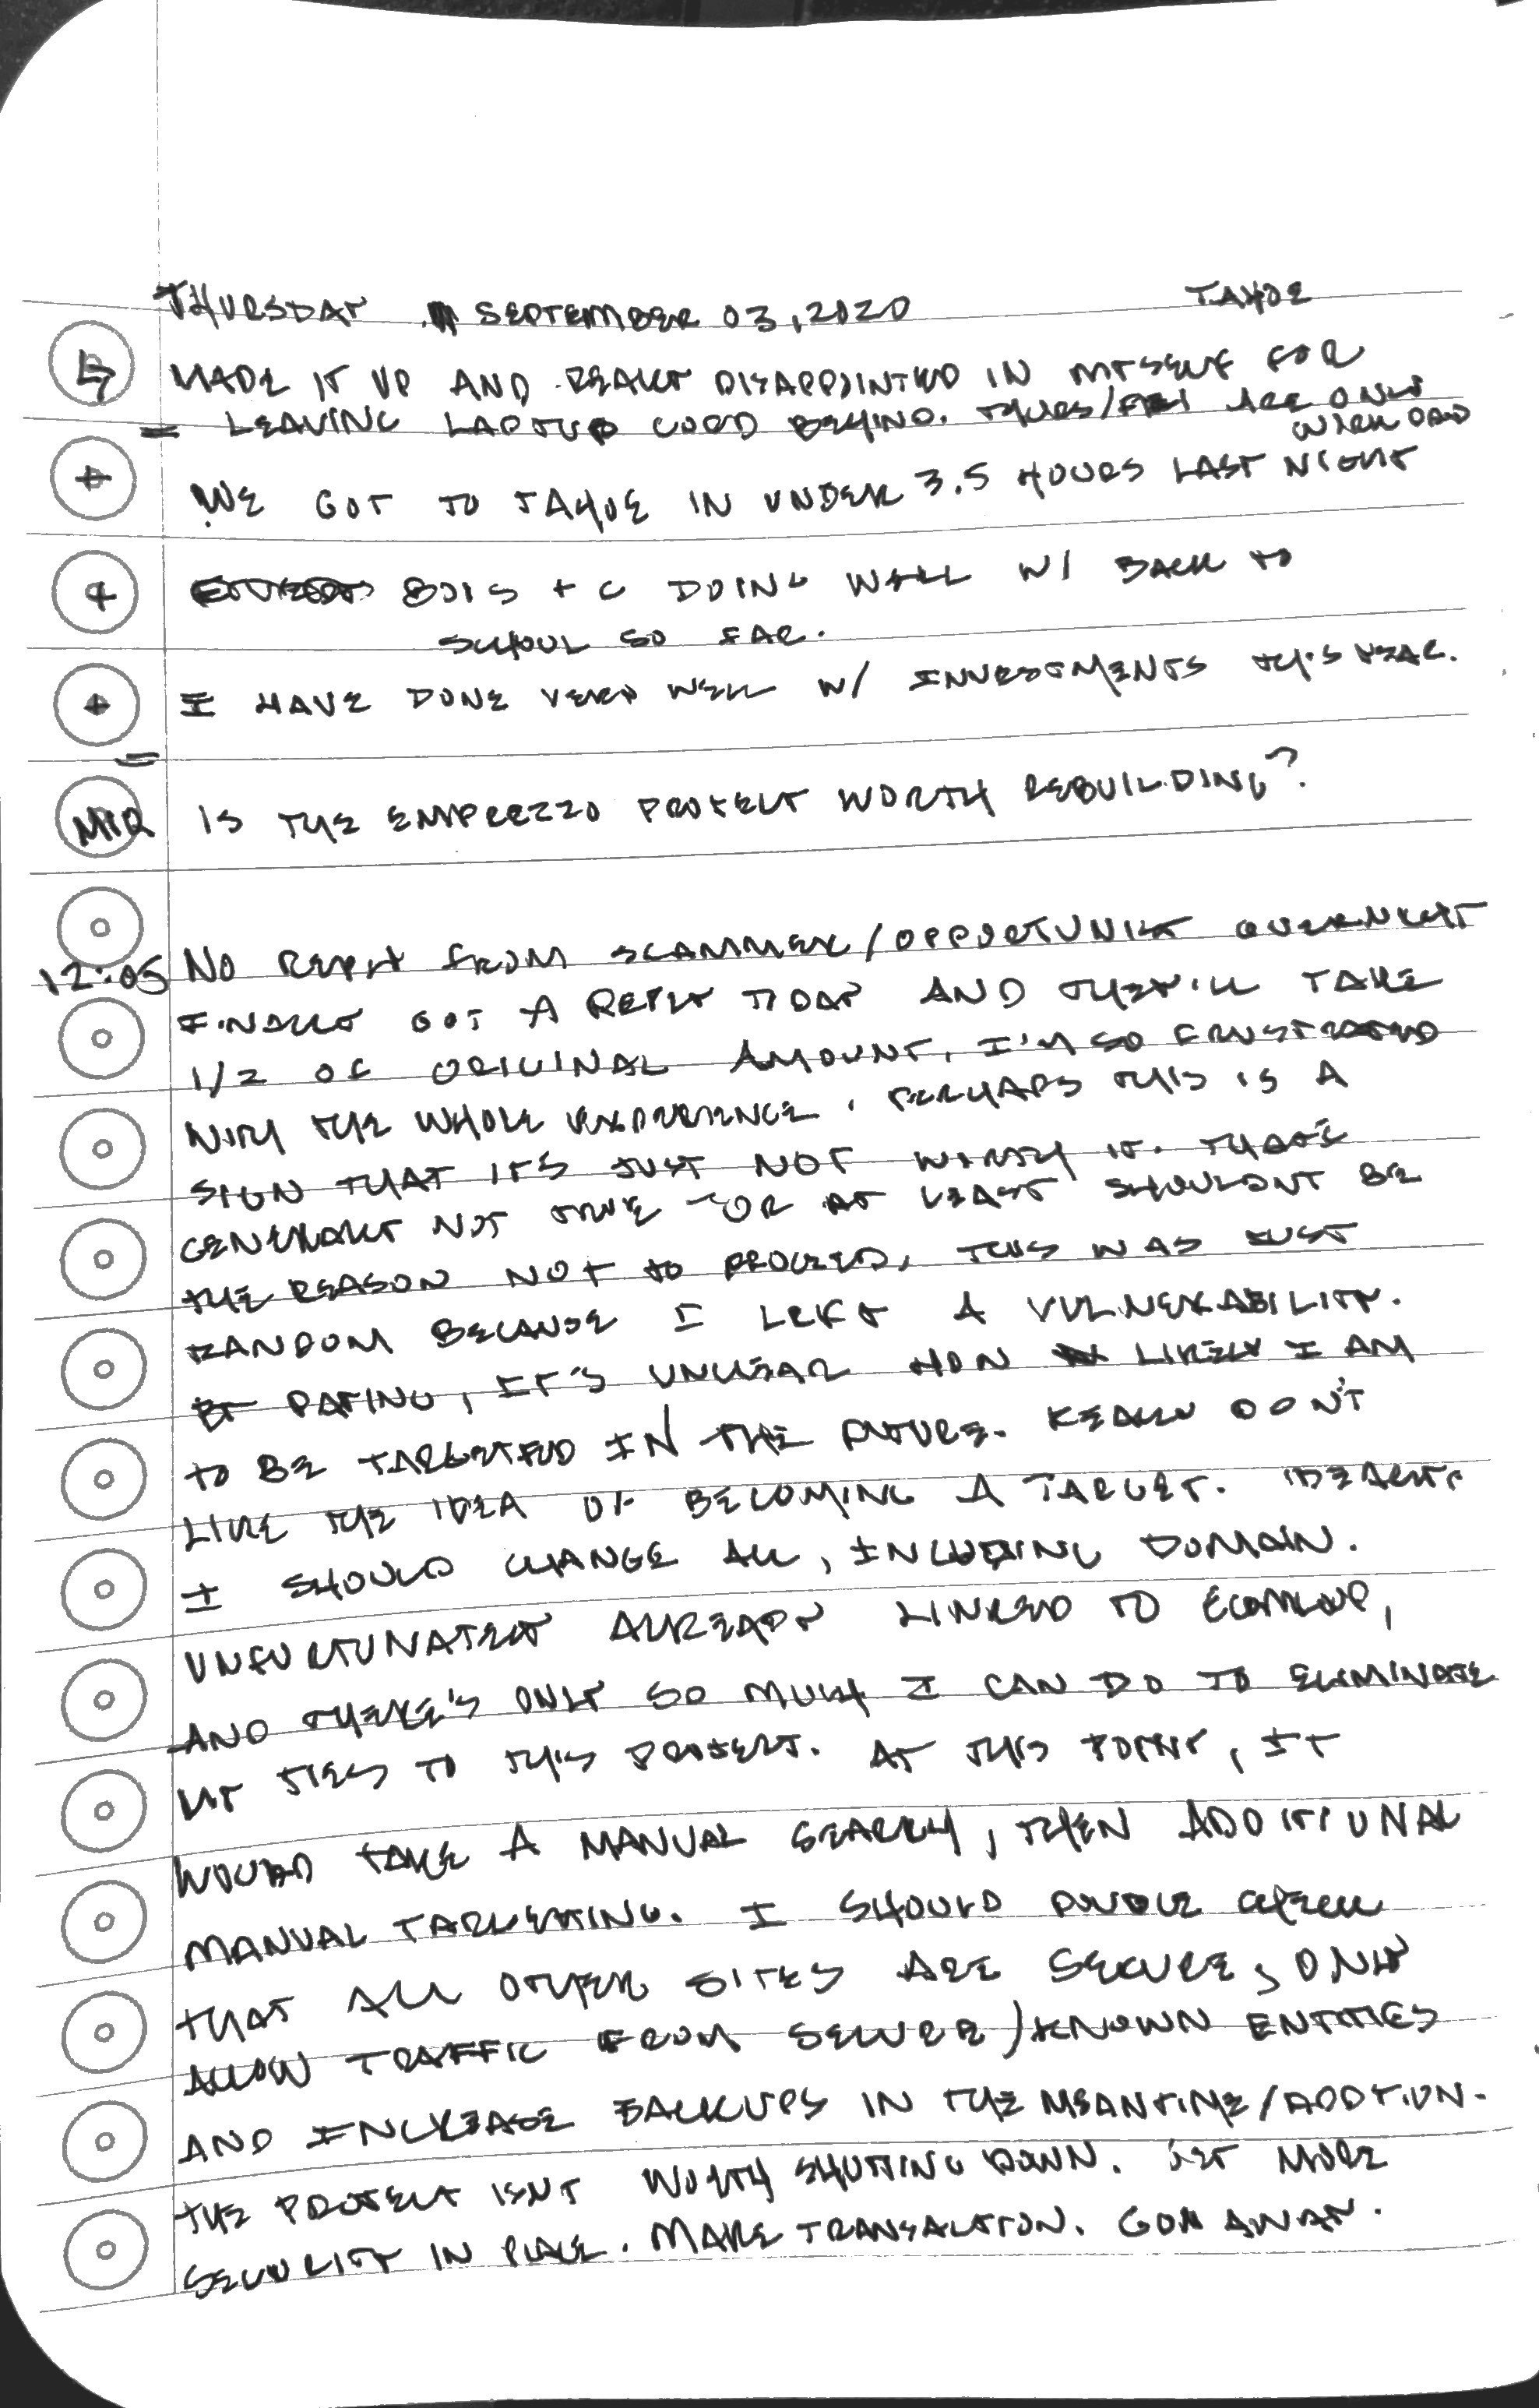 THURSDAY SEPTEMBER 03, 2020 TAHOE
MADE IT UP AND REALLY DISAPPOINTED IN MYSELF FOR
= LEAVING LAPTOP CORD BEHIND. THURS/FRI ARE ONLY
WORK
+ WE GOT TO TAHOE IN UNDER 3.5 HOURS LAST NIGHT
+ BOIS + C DOING WELL W/ BACK TO
SCHOOL SO FAR.
+ I HAVE DONE VERY WELL W/ INVESTMENTS THIS YEAR.
=
MIQ IS THE EMPREZZO PROJECT WORTH REBUILDING?
12:05 NO REPLY FROM SCAMMER/OPPORTUNIST OVERNIGHT
FINALLY GOT A REPLY TODAY AND THEY'LL TAKE
1/2 OF ORIGINAL AMOUNT. I'M SO FRUSTRATED
WITH THE WHOLE EXPERIENCE. PERHAPS THIS IS A
SIGN THAT IT'S JUST NOT WORTH IT. THAT'S
GENERALLY NOT TRUE - OR AT LEAST SHOULDNT BE
THE REASON NOT TO PROCEED, THIS WAS JUST
RANDOM BECAUSE I LEFT A VULNERABILITY.
BY PAYING, IT'S UNCLEAR HOW LIKELY I AM
TO BE TARGETED IN THE FUTURE. REALLY DON'T
LIKE THE IDEA OF BECOMING A TARGET. IDEALLY
I SHOULD CHANGE ALL, INCLUDING DOMAIN.
UNFORTUNATELY ALREADY LINKED TO
AND THERE'S ONLY SO MUCH I CAN DO TO ELIMINATE
MY TIES TO THIS PROJECT. AT THIS POINT, IT
WOULD TAKE A MANUAL SEARCH, THEN ADDITIONAL
MANUAL TARGETING. I SHOULD DOUBLE CHECK
THAT ALL OTHER SITES ARE SECURE, ONLY
ALLOW TRAFFIC FROM SECURE/KNOWN ENTITIES
AND INCREASE BACKUPS IN THE MEANTIME/ADDTION.
THE PROJECT ISNT WORTH SHUTTING DOWN. GET MORE
SECURITY IN PLACE. MAKE TRANSACTION. AWAY.